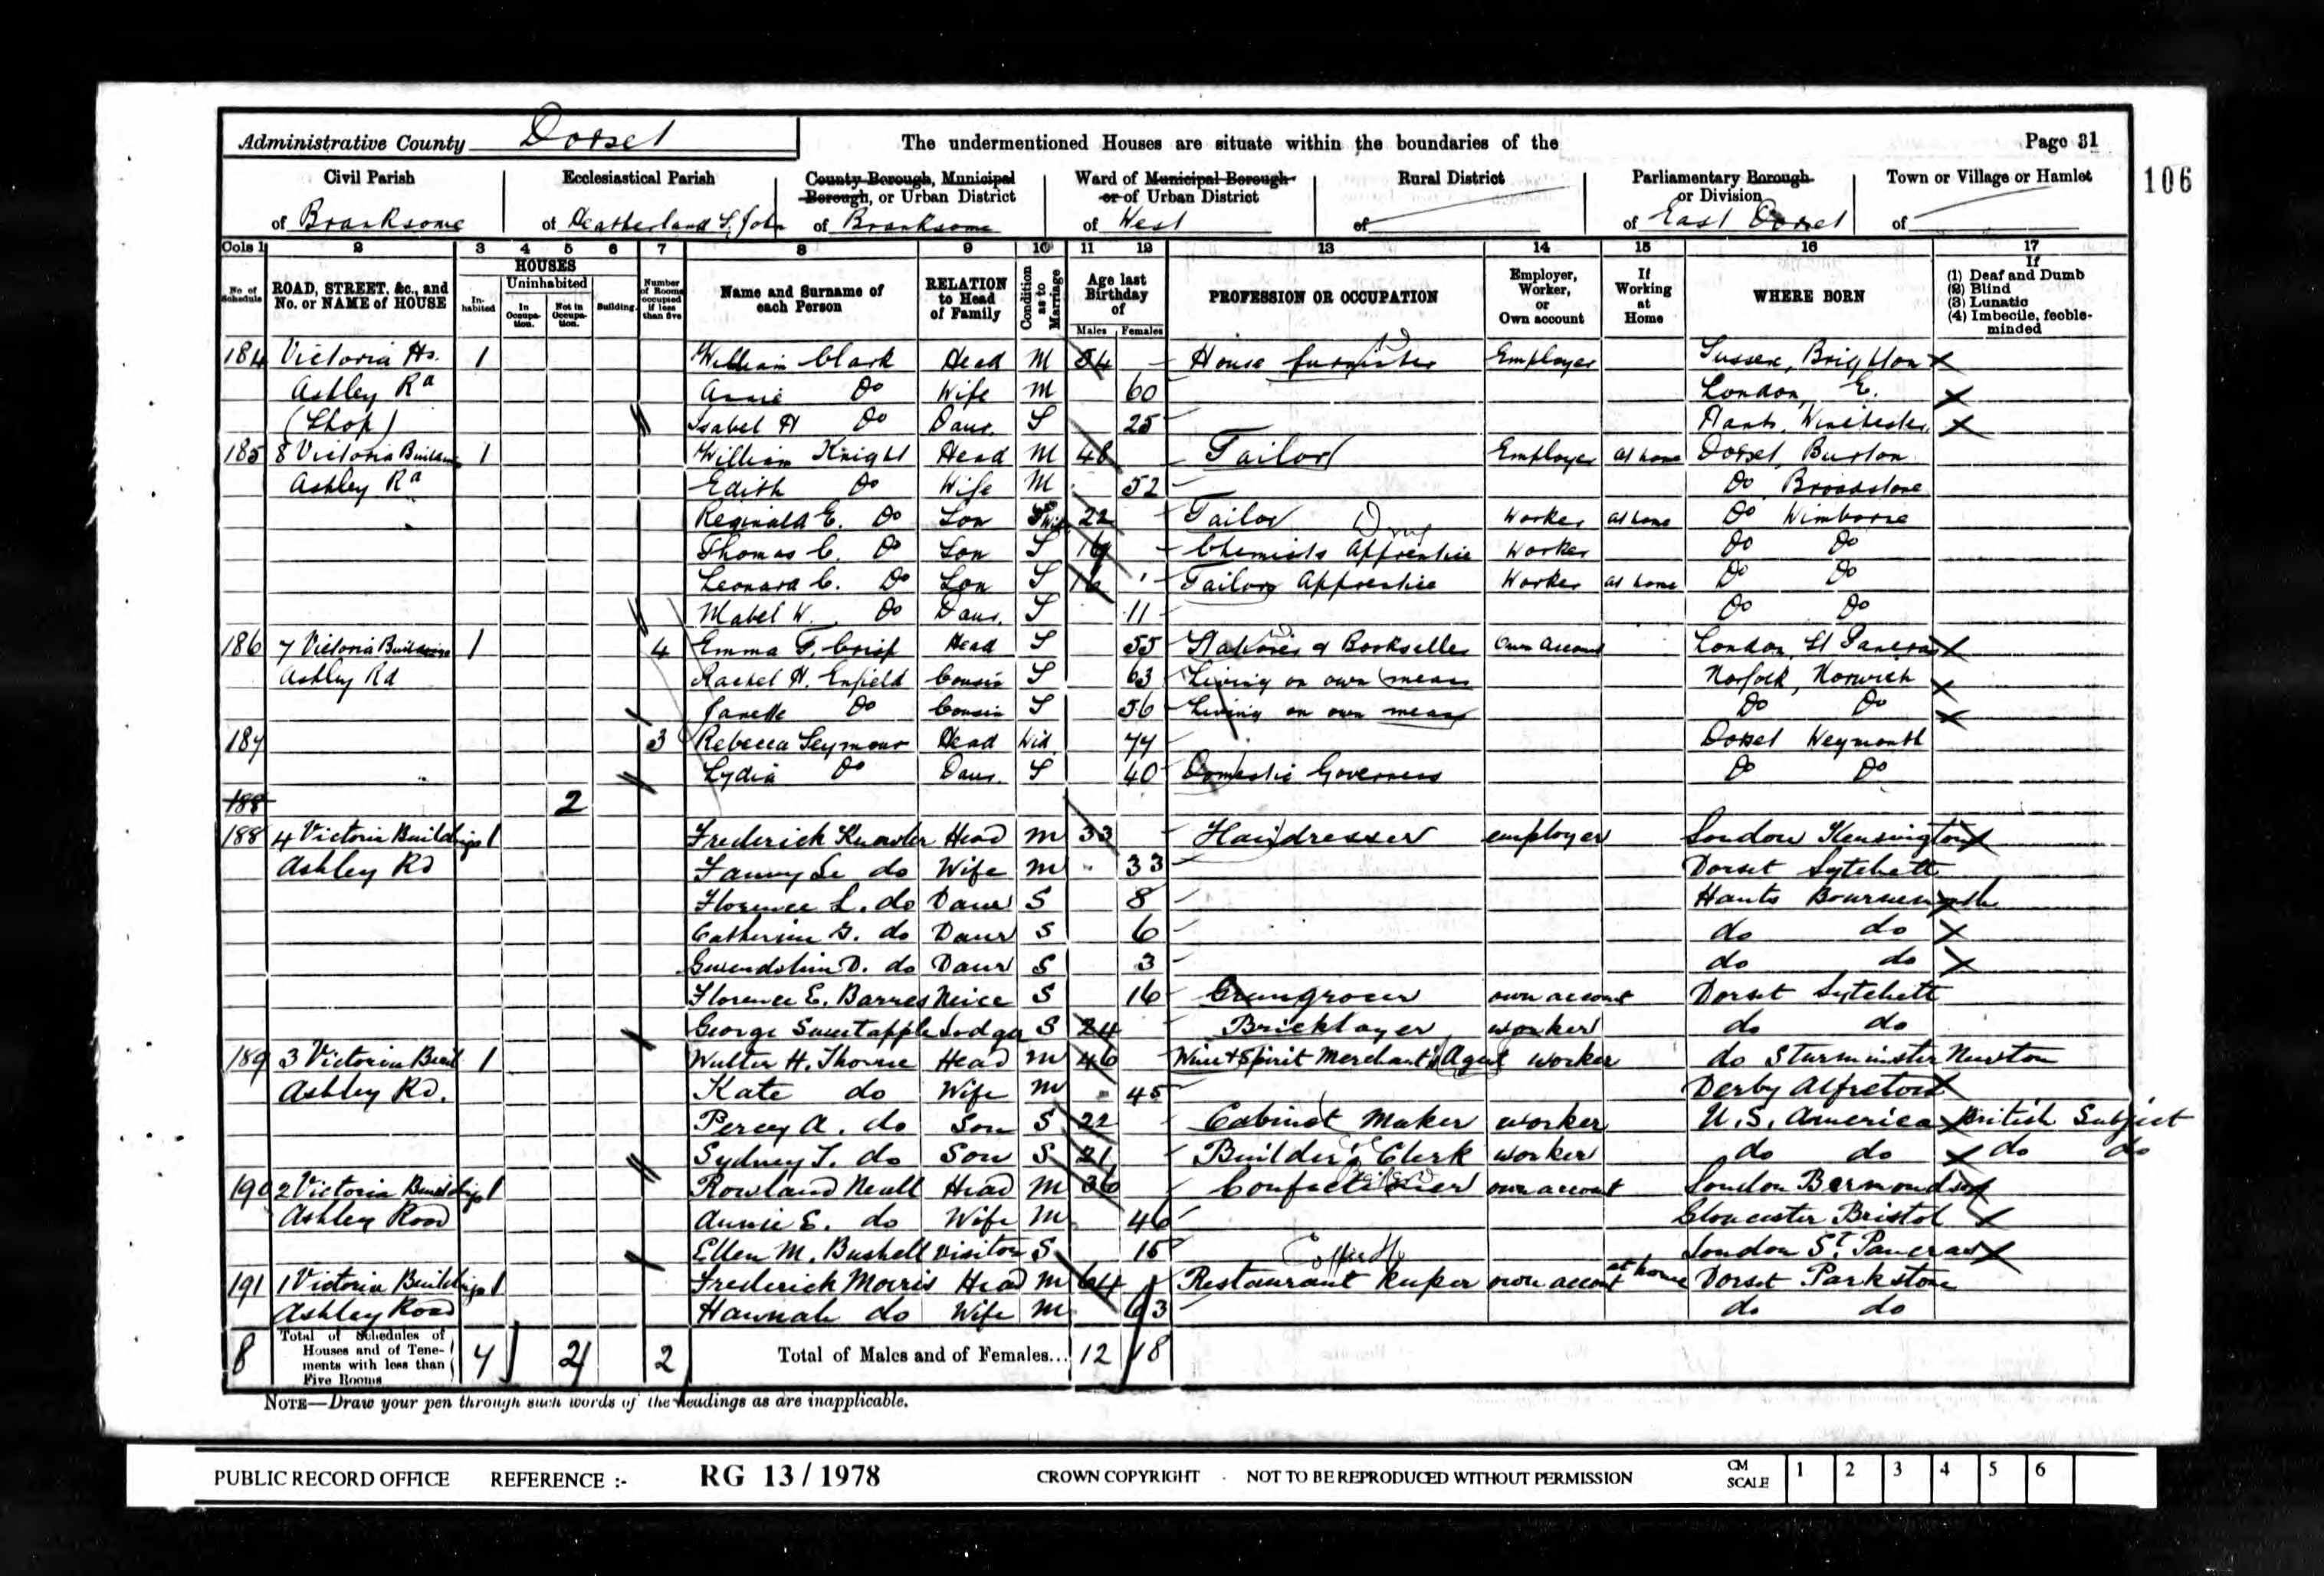 Administrative County Dorset The undermentioned Houses are situate within the boundaries of the Page 31
106
Civil Parish Ecclesiastical Parish County Borough, Municipal Borough, or Urban District Ward of Municipal Borough or of Urban District Rural District Parliamentary Borough or Division Town or Village or Hamlet
of Branksome of Heatherland St. John of Branksome of West of of East Dorset of
Cols 1 2 3 4 5 6 7 8 9 10 11 12 13 14 15 16 17
No of Schedule ROAD, STREET, &c., and No. or NAME of HOUSE HOUSES Inhabited Uninhabited In Occupation. Not in Occupation. Building. Number of Rooms occupied if less than five Name and Surname of each Person RELATION to Head of Family Condition as to Marriage Age last Birthday of Males Females PROFESSION OR OCCUPATION Employer, Worker, or Own account If Working at Home WHERE BORN If (1) Deaf and Dumb (2) Blind (3) Lunatic (4) Imbecile, feeble-minded
184 Victoria Ho. 1 William Clark Head M 54 House furnisher Employer Sussex, Brighton
Ashley Rd Annie Do Wife M 60 London, E.
(Shop) Isabel H Do Daur. S 25 Hants, Winchester
185 8 Victoria Buildin 1 William Knight Head M 48 Tailor Employer At home Dorset, Burton
Ashley Rd Edith Do Wife M 52 Do Broadstone
Reginald E. Do Son 22 Tailor Worker At home Do Wimborne
Thomas C. Do Son S 19 Chemists Apprentice Worker Do Do
Leonard C. Do Son S 16 Tailors Apprentice Worker At home Do Do
Mabel W. Do Daur. S 11 Do Do
186 7 Victoria Buildings 1 4 Emma F. Crisp Head S 55 Stationer & Bookseller Own Account London, St Pancras
Ashley Rd Rachel H. Enfield Cousin S 63 Living on own means Norfolk, Norwich
Janette Do Cousin S 56 Living on own means Do Do
187 3 Rebecca Seymour Head Wid. 77 Dorset Weymouth
" Lydia Do Daur. S 40 Domestic Governess Do Do
188 2
188 4 Victoria Buildings 1 Frederick Knowler Head M 33 Hairdresser employer London Kensington
Ashley Rd Fanny Le do Wife M 33 Dorset Lytchett
Florence L. do Daur S 8 Hants Bournemouth
Catherine G. do Daur S 6 do do
Gwendoline D. do Daur S 3 do do
Florence E. Barnes Neice S 16 Greengrocer own account Dorset Lytchett
George Sweetapple Lodger S 24 Bricklayer worker do do
189 3 Victoria Buil 1 Walter H. Thorne Head M 46 Wine & Spirit Merchant's Agent worker do Sturminster Newton
Ashley Rd. Kate do Wife M 45 Derby Alfreton
Percy A. do Son S 22 Cabinet Maker worker U.S. America British Subject
Sydney T. do Son S 21 Builder's Clerk worker do do do do
190 2 Victoria Buildings 1 Rowland Neall Head M 36 Confectioner own account London Bermondsey
Ashley Road Annie E. do Wife M 46 Gloucester Bristol
Ellen M. Bushell Visitor S 15 London St. Pancras
Coffee Ho
191 1 Victoria Buildings 1 Frederick Morris Head M 64 Restaurant Keeper own account at home Dorset Parkstone
Ashley Road Hannah do Wife M 63 do do
8 Total of Schedules of Houses and of Tenements with less than Five Rooms 7 2 2 Total of Males and of Females... 12 18
NOTE—Draw your pen through such words of the headings as are inapplicable.
PUBLIC RECORD OFFICE REFERENCE :- RG 13 / 1978 CROWN COPYRIGHT · NOT TO BE REPRODUCED WITHOUT PERMISSION CM SCALE 1 2 3 4 5 6